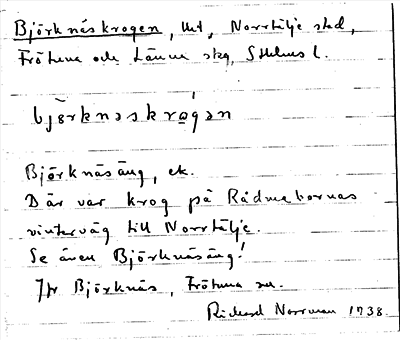 Björknäskrogen, lht, Norrtälje stad,
Frötuna och Länna skg, Sthlms l.
bjœrknəskrogən
Björknäsäng, ek.
Där var krog på Rådmabornas
vinterväg till Norrtälje.
Se även Björknäsäng!
Jfr Björknäs, Frötuna sn.
Rickard Norrman 1938.